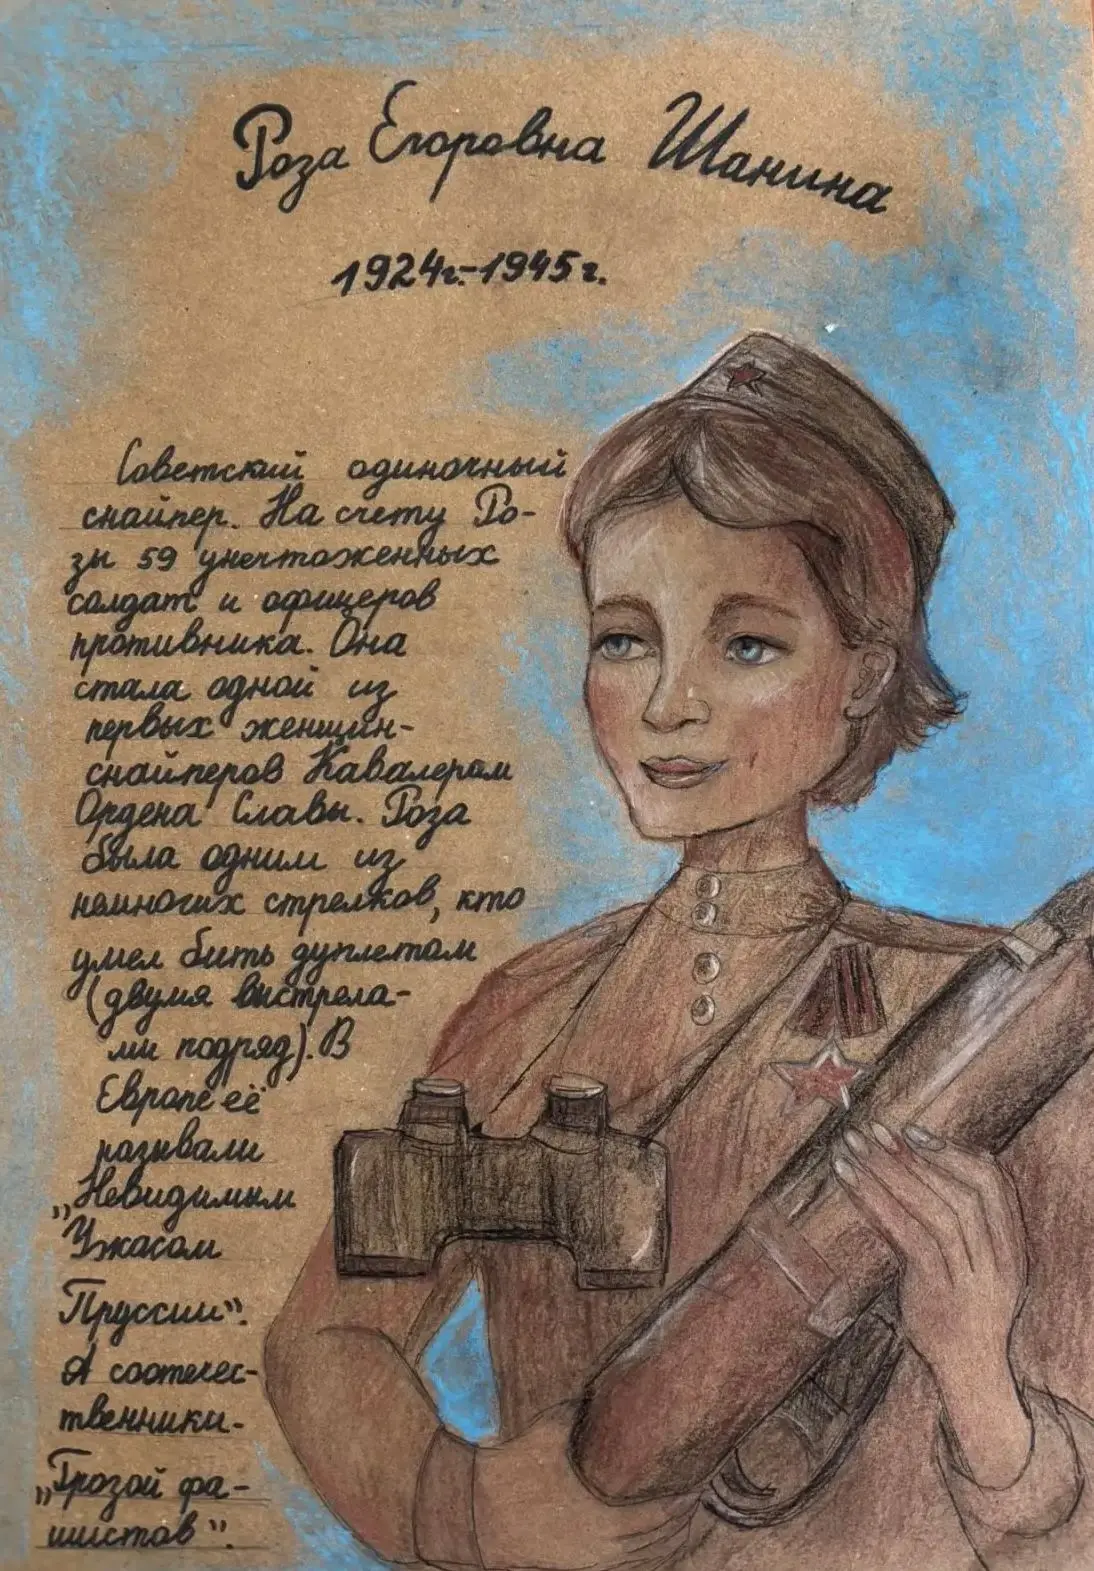 Роза Егоровна Шанина
1924г.-1945г.
Советский одиночный
снайпер. На счету Ро-
зы 59 уничтоженных
солдат и офицеров
противника. Она
стала одной из
первых женщин-
снайперов Кавалером
Ордена Славы. Роза
была одним из
немногих стрелков, кто
умел бить дуплетом
(двумя выстрела-
ми подряд). В
Европе её
называли
„Невидимым
Ужасом
Пруссии".
А соотечес-
твенники-
„Грозой фа-
шистов".